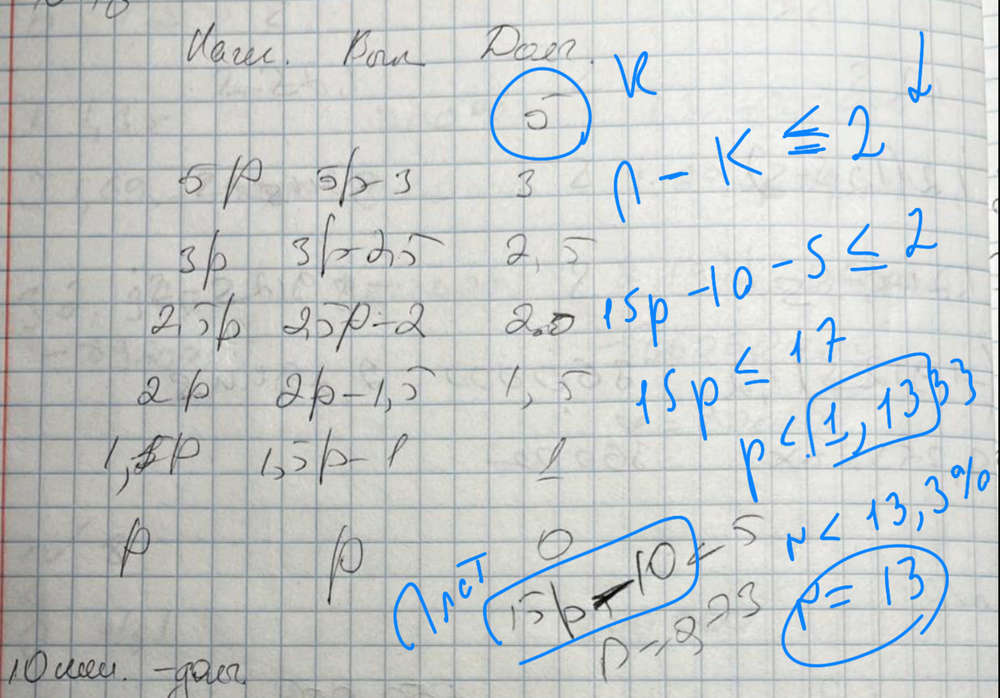 Нач. Вып Долг.
5 K
n - K ≤ 2
5p 5p-3 3
3p 3p-2,5 2,5
15p - 10 - 5 ≤ 2
2,5p 2,5p-2 2.0
15p ≤ 17
2p 2p-1,5 1,5
p < 1,1333
1,5p 1,5p-1 1
r < 13,3%
p p 0
15p - 10 < 5
r = 13
10 млн. - долг